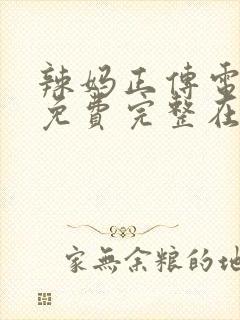 辣妈正傅電
免費完整在
家無余粮的地